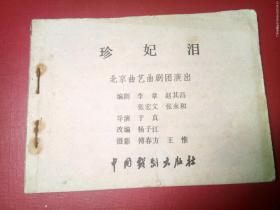 珍妃泪
北京曲艺曲剧团演出
编剧 李章 赵其昌
张宏文 张永和
导演 于真
改编 杨子江
摄影 傅春方 王惟
中国戏剧出版社